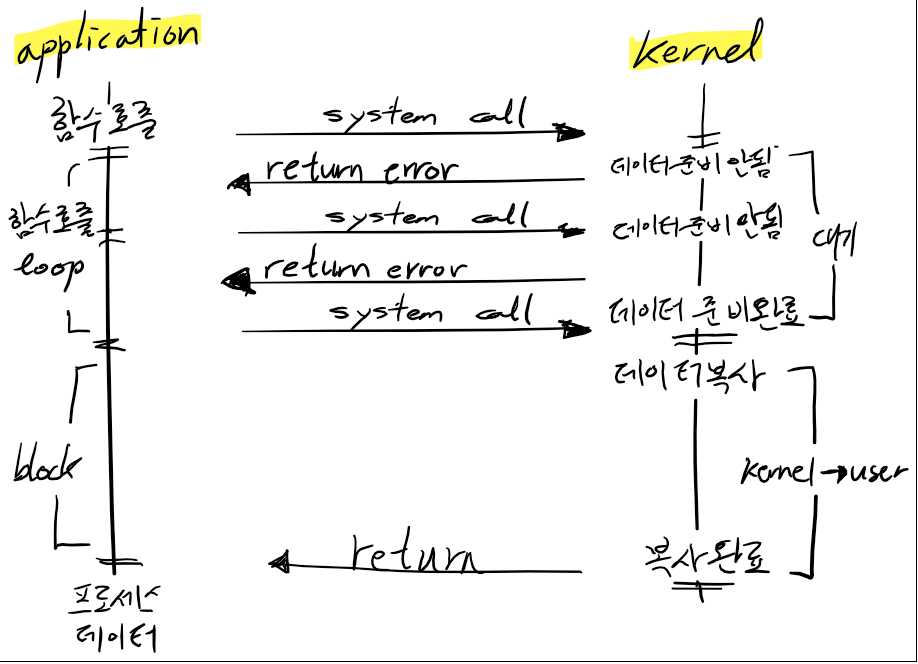 application
kernel
함수호출
system call
return error
데이터준비안됨
함수호출
system call
데이터준비안됨
대기
loop
return error
system call
데이터 준비완료
데이터복사
block
kernel→user
return
복사완료
프로세스
데이터